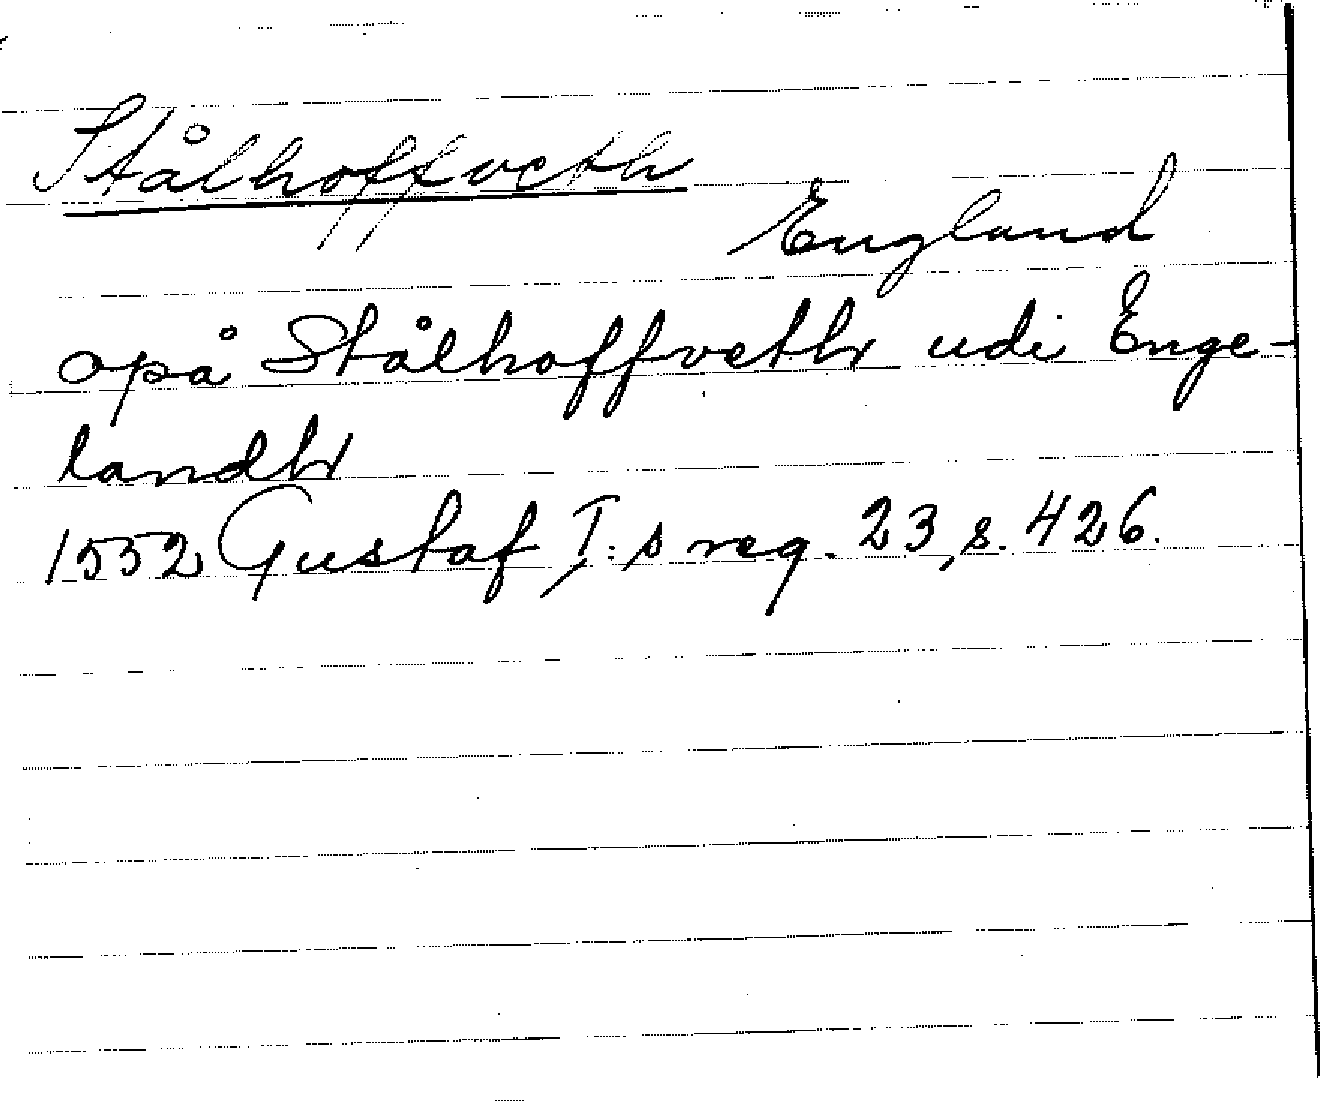 Stålhoffveth
England
opå Stålhoffveth udi Enge-
landh
1552 Gustaf I:s reg. 23, s. 426.